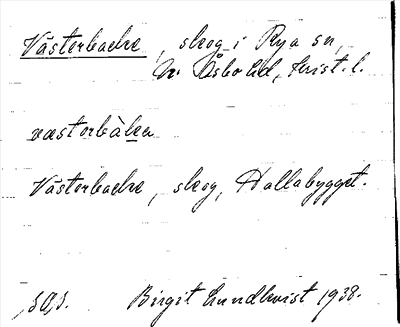 Västerbacke, skog i Rya sn,
N. Åsbo hd, Krist. l.
væstərbàkən
Västerbacke, skog, Hallabygget.
Birgit Lundkvist 1938.